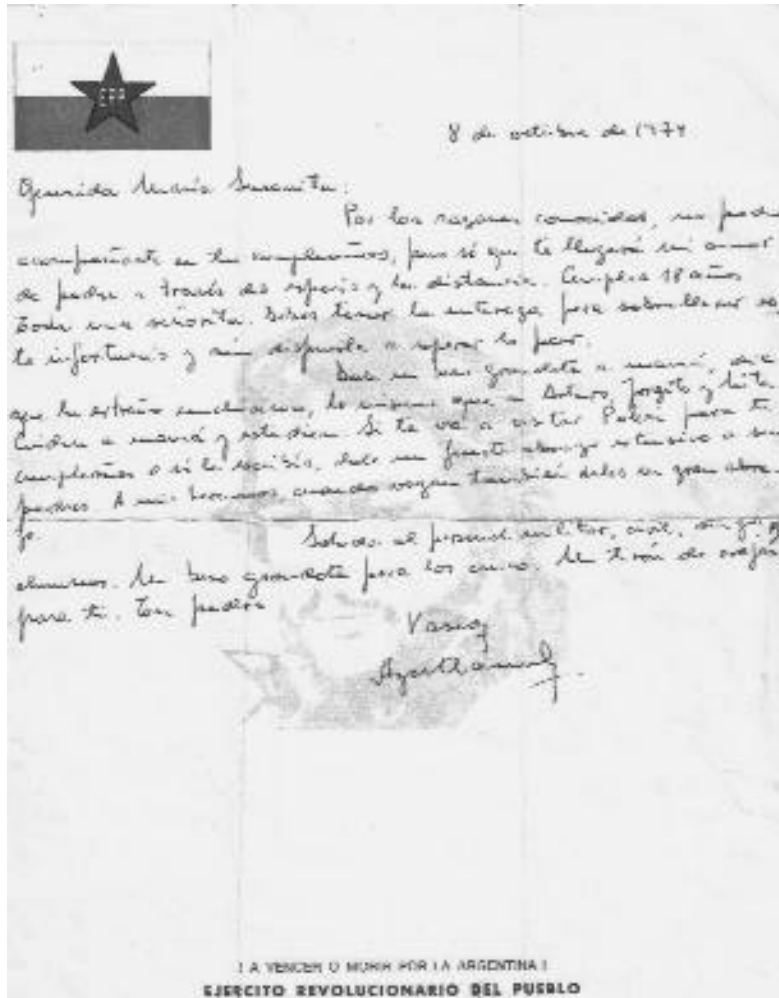 ERP
8 de octubre de 1974
Querida María Susanita:
Por las razones conocidas, no podré
acompañarte en tu cumpleaños, pero sé que te llegará mi amor
de padre a través del espacio y la distancia. Cumples 18 años
toda una señorita. Debes tener la entereza para sobrellevar es
te infortunio y aún dispuesta a esperar lo peor.
Dale un beso grandote a mamá, dile
que la extraño muchísimo, lo mismo que a Arturo, Jorgito y
Cuiden a mamá y estudien. Si te va a visitar para tu
cumpleaños o si le escribís, dale un fuerte abrazo extensivo a sus
padres. A mis hermanos, cuando vayan también dales un gran abra
zo.
Saludos al personal militar, civil, y
alumnos. Un beso grandote para los cinco. Un tirón de orejas
para ti. Tu padre